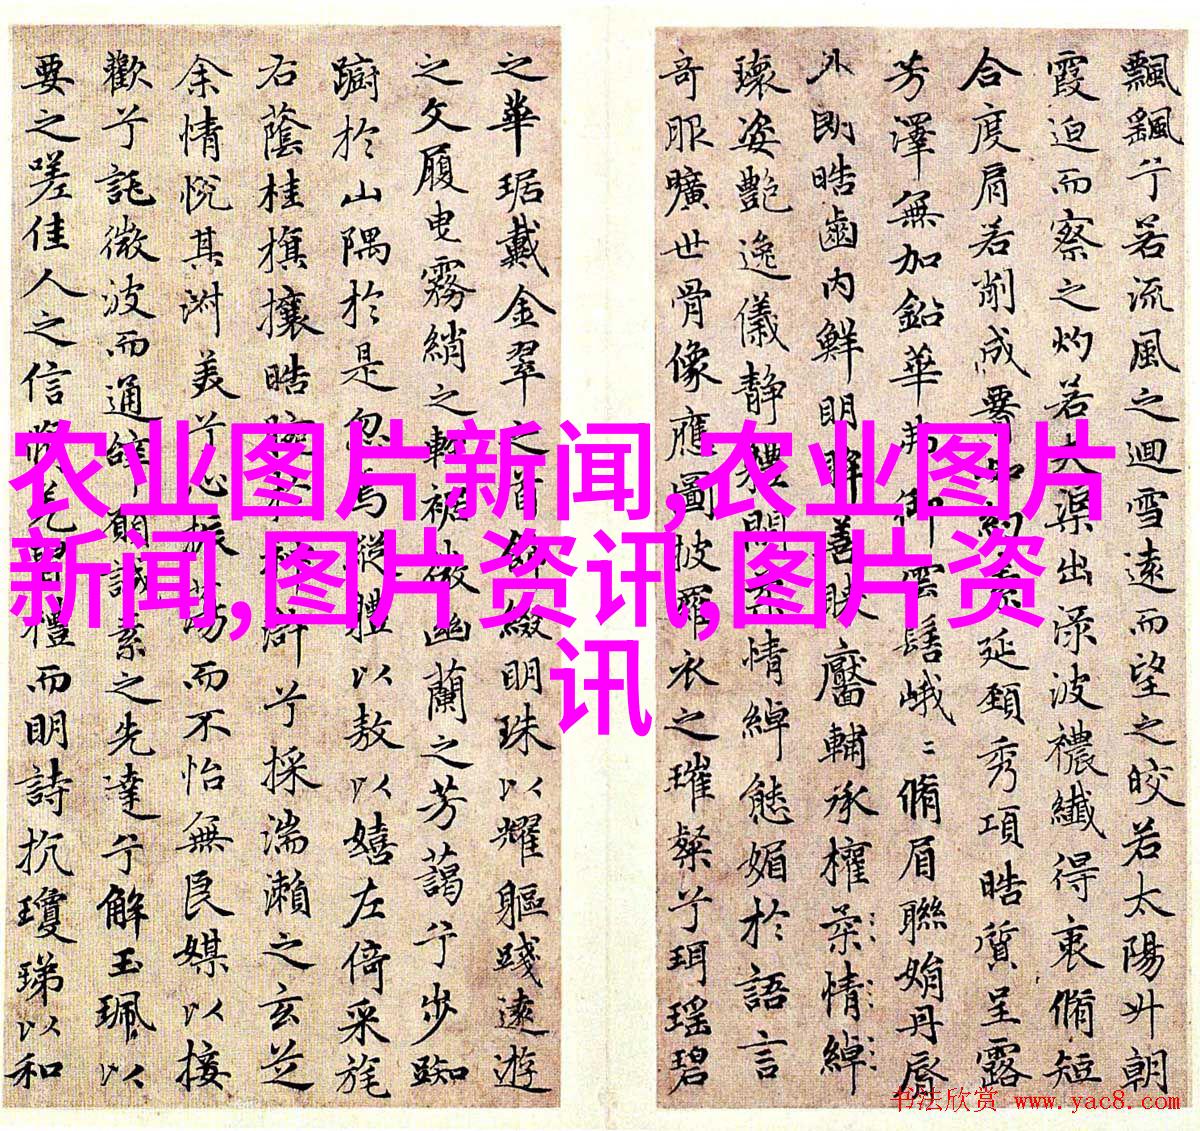 飄飖兮若流風之迴雪遠而望之皎若太陽升朝
霞迫而察之灼若夫渠出淥波禯纖得衷脩短
合度肩若削成要如約素延頸秀項皓質呈露
芳澤無加鉛華弗御雲髻峨〻脩眉聯娟丹脣
外朗皓齒內鮮明眸善睞靨輔承權柔情綽
瓌姿艷逸儀靜體閒柔情綽態媚於語言
奇服曠世骨像應圖披羅衣之璀粲兮珥瑤碧
之華琚戴金翠之首飾綴明珠以耀軀踐遠遊
之文履曳霧綃之輕裾微幽蘭之芳藹兮步踟
躕於山隅於是忽焉縱體以敖以嬉左倚采旄
右蔭桂旗攘皓腕於神滸兮採湍瀨之玄芝
余情悅其淑美兮心振蕩而不怡無良媒以接
歡兮託微波而通辭願誠素之先達兮解玉珮以
要之嗟佳人之信脩羌習禮而明詩抗瓊珶以和
农业图片新闻,农业图片
新闻,图片资讯,图片资
讯
书法欣赏 www.yac8.com